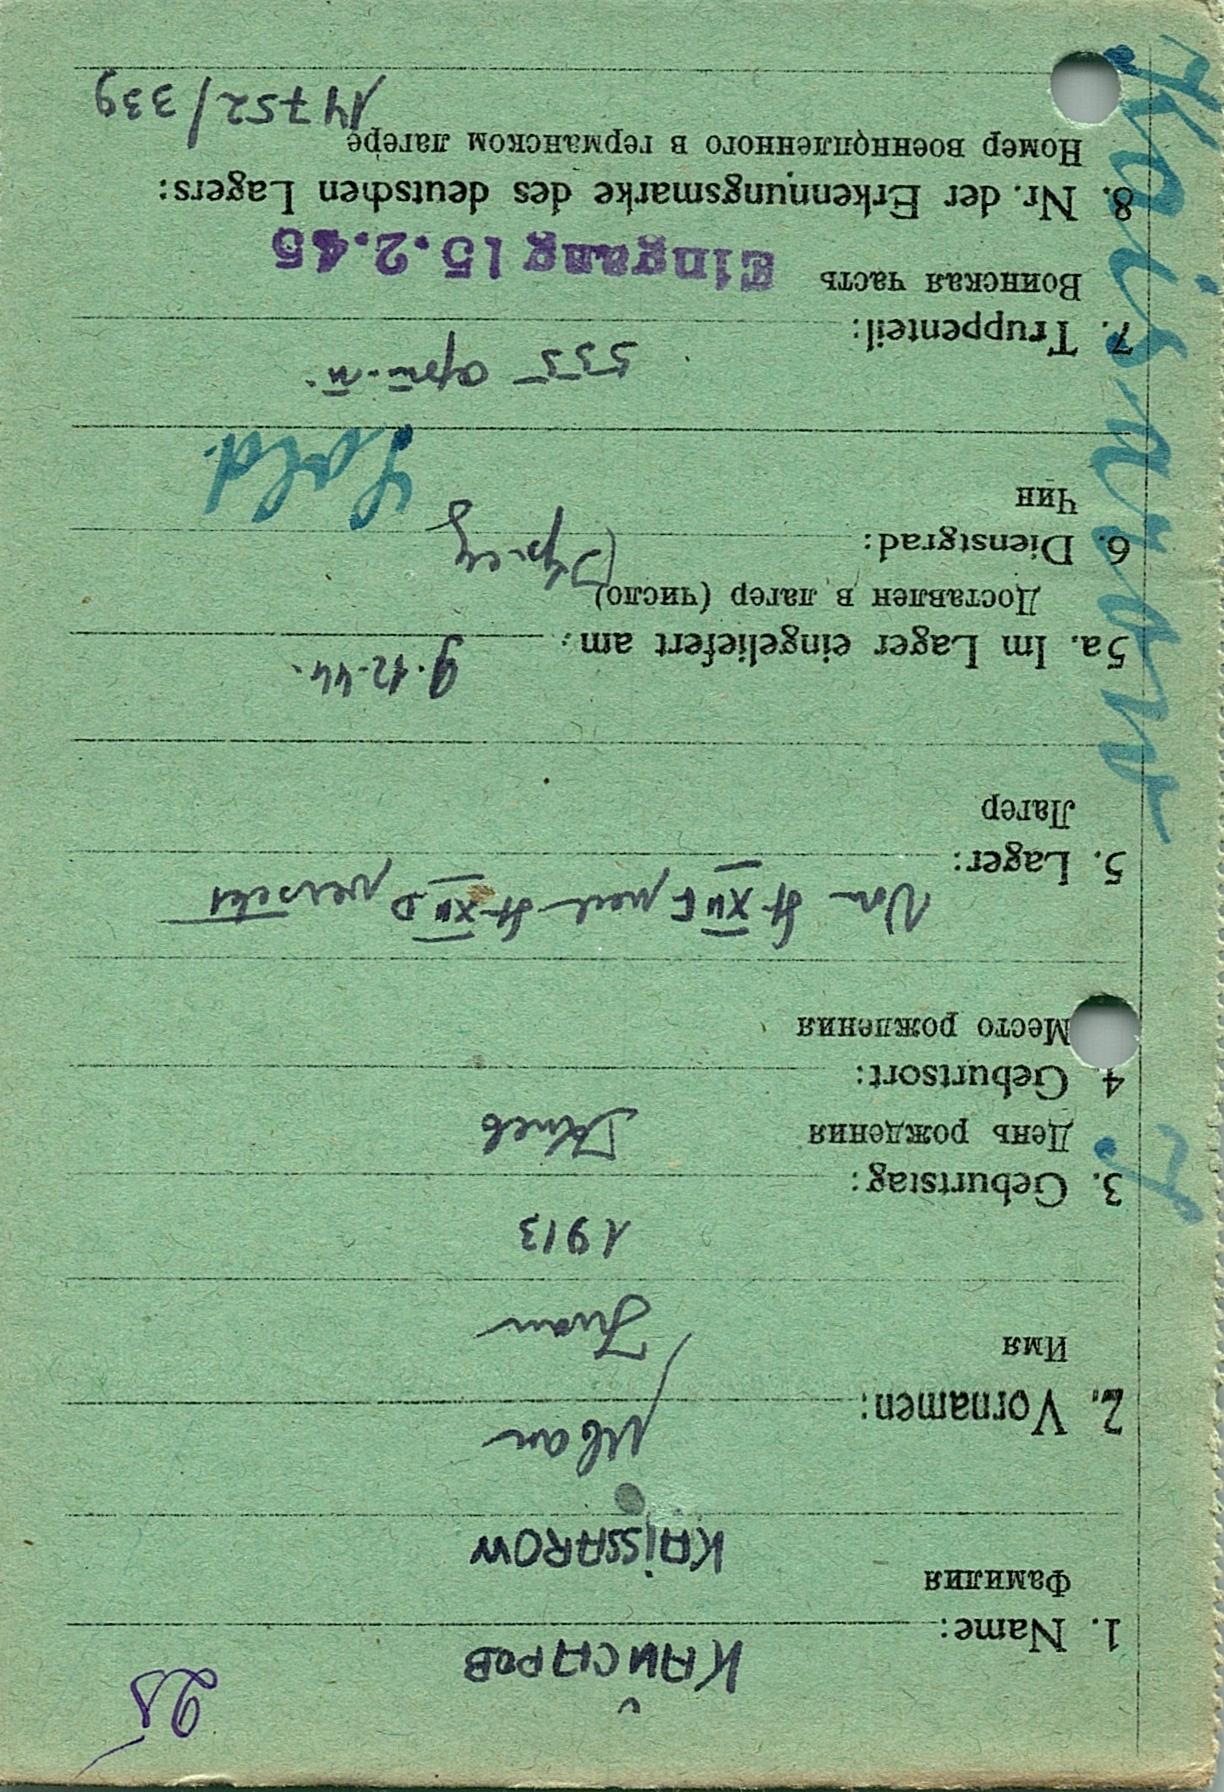 25
1. Name:
КАЙСАРОВ
Фамилия
KAISSAROW
2. Vornamen:
Иван
Имя
Iwan
3. Geburtstag:
1913
День рождения
4 Geburtsort:
Место рождения
5. Lager:
Von St. XII F nach St. XII D versetzt
Лагер
5a. Im Lager eingeliefert am:
9.12.44.
Доставлен в лагер (число)
6. Dienstgrad:
Чин
Sold.
7. Truppenteil:
535
Воинская часть
Eingang 15.2.45
8. Nr. der Erkennungsmarke des deutschen Lagers:
Номер военнопленного в германском лагере
14752/339
Kaisarow
J.